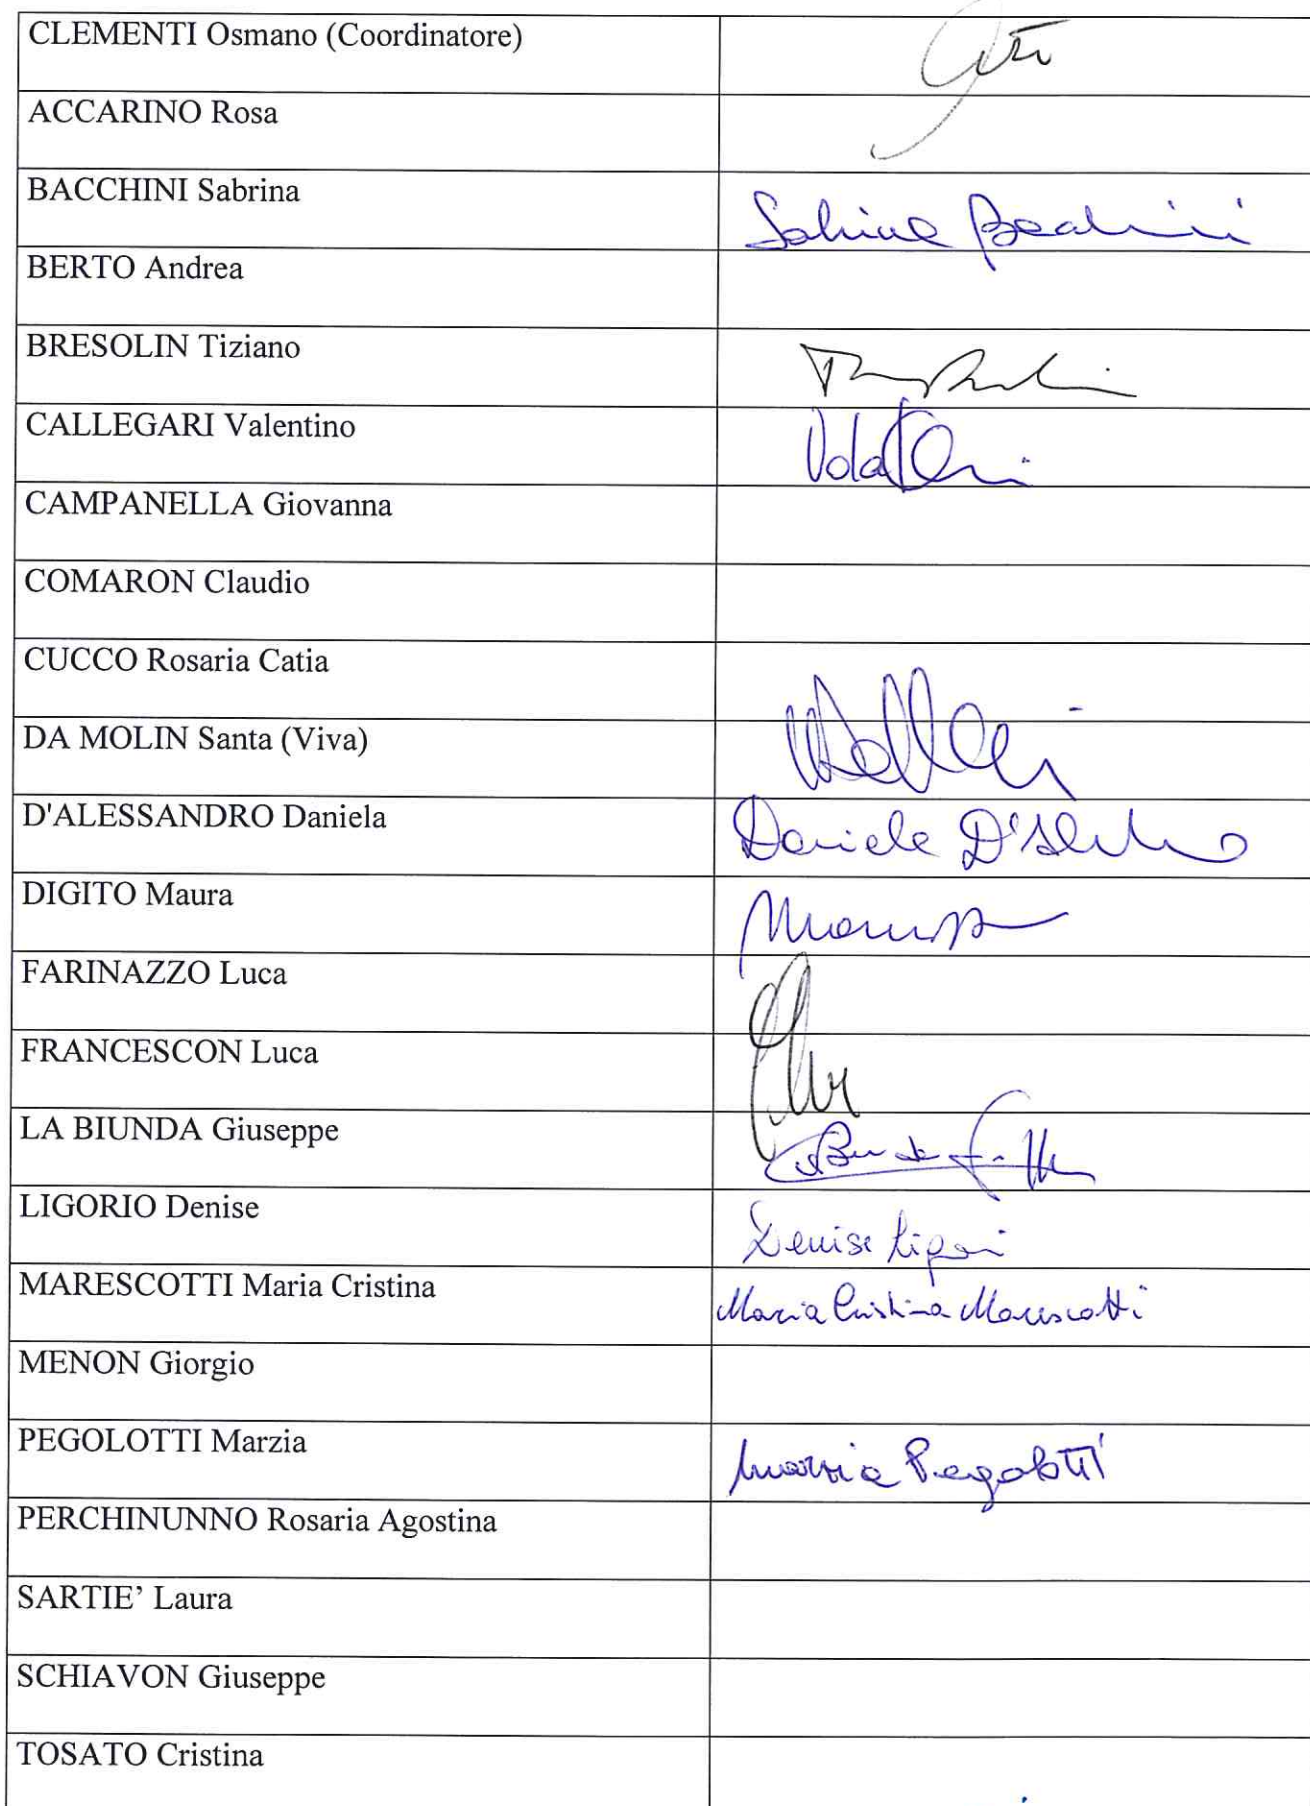 CLEMENTI Osmano (Coordinatore)
ACCARINO Rosa
BACCHINI Sabrina
Sabrina Bacchini
BERTO Andrea
BRESOLIN Tiziano
CALLEGARI Valentino
CAMPANELLA Giovanna
COMARON Claudio
CUCCO Rosaria Catia
DA MOLIN Santa (Viva)
D'ALESSANDRO Daniela
Daniela
DIGITO Maura
FARINAZZO Luca
FRANCESCON Luca
LA BIUNDA Giuseppe
LIGORIO Denise
Denise
MARESCOTTI Maria Cristina
Maria Cristina Marescotti
MENON Giorgio
PEGOLOTTI Marzia
Marzia Pegolotti
PERCHINUNNO Rosaria Agostina
SARTIE’ Laura
SCHIAVON Giuseppe
TOSATO Cristina